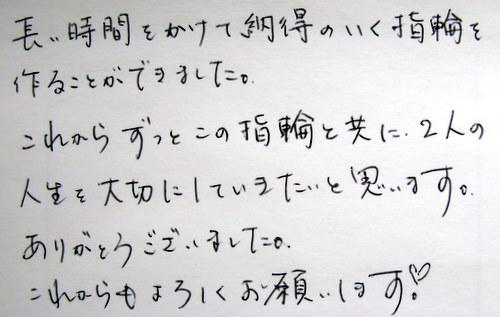 長い時間をかけて納得のいく指輪を
作ることができました。
これからずっとこの指輪と共に、2人の
人生を大切にしていきたいと思います。
ありがとうございました。
これからもよろしくお願いします!♡